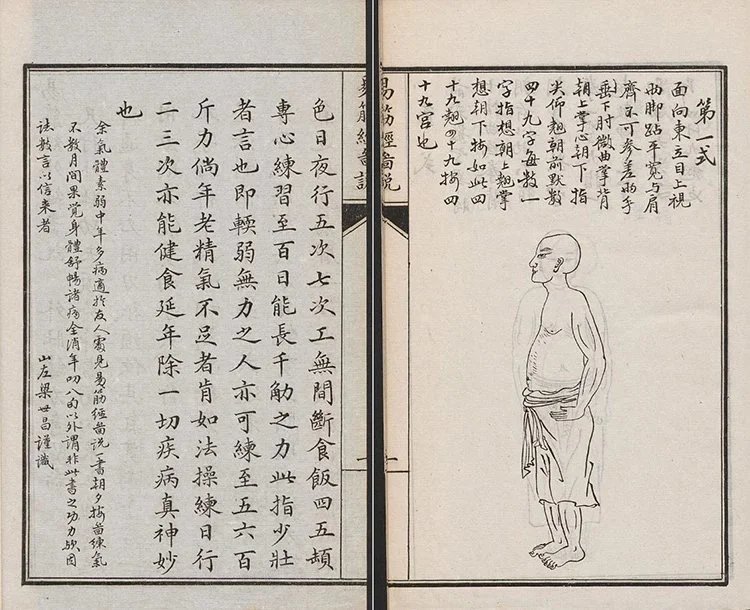 第一式
面向東立目上視
兩脚跕平寬與肩
齊不可參差兩手
垂下肘微曲掌背
朝上掌心朝下指
尖仰翹朝前默數
四十九字每數一
字指想朝上翹掌
想朝下按如此四
十九翹四十九按四
十九宮也
易筋經圖說
易筋經圖說
色日夜行五次七次工無間斷食飯四五頓
專心練習至百日能長千觔之力此指少壯
者言也即輭弱無力之人亦可練至五六百
斤力倘年老精氣不足者肯如法操練日行
二三次亦能健食延年除一切疾病真神妙
也
余氣體素弱中年多病適於友人處見易筋經圖說一書朝夕按圖練氣
不數月間果覺身體舒暢諸病全消年八旬以外謂非此書之功力歟因
誌數言以信来者
山左梁世昌謹識